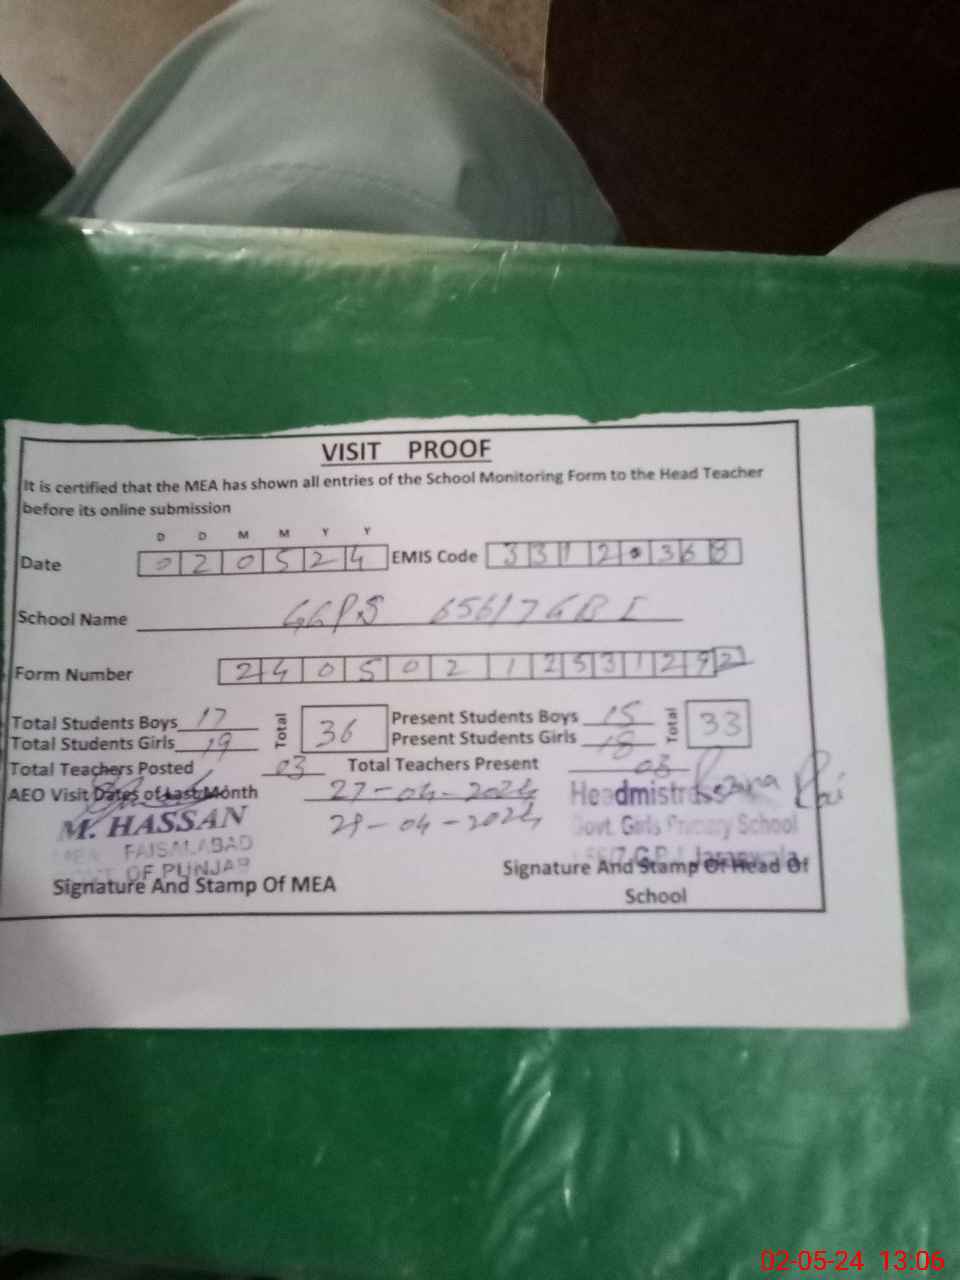 VISIT PROOF
It is certified that the MEA has shown all entries of the School Monitoring Form to the Head Teacher
before its online submission
D D M M Y Y
Date 0 2 0 5 2 4 EMIS Code 3 3 1 2 0 3 6 8
School Name GGPS 656/7 GB I
Form Number 2 4 0 5 0 2 1 2 5 3 1 2 9 2
Total Students Boys 17 Total 36 Present Students Boys 15 Total 33
Total Students Girls 19 Present Students Girls 18
Total Teachers Posted 03 Total Teachers Present 03
AEO Visit Dates of Last Month 27-04-2024 Headmistress
M. HASSAN 29-04-2024 Govt. Girls Primary School
MEA FAISALABAD
OF PUNJAB Jaranwala
Signature And Stamp Of MEA Signature And Stamp Of Head Of
School
02-05-24 13:06